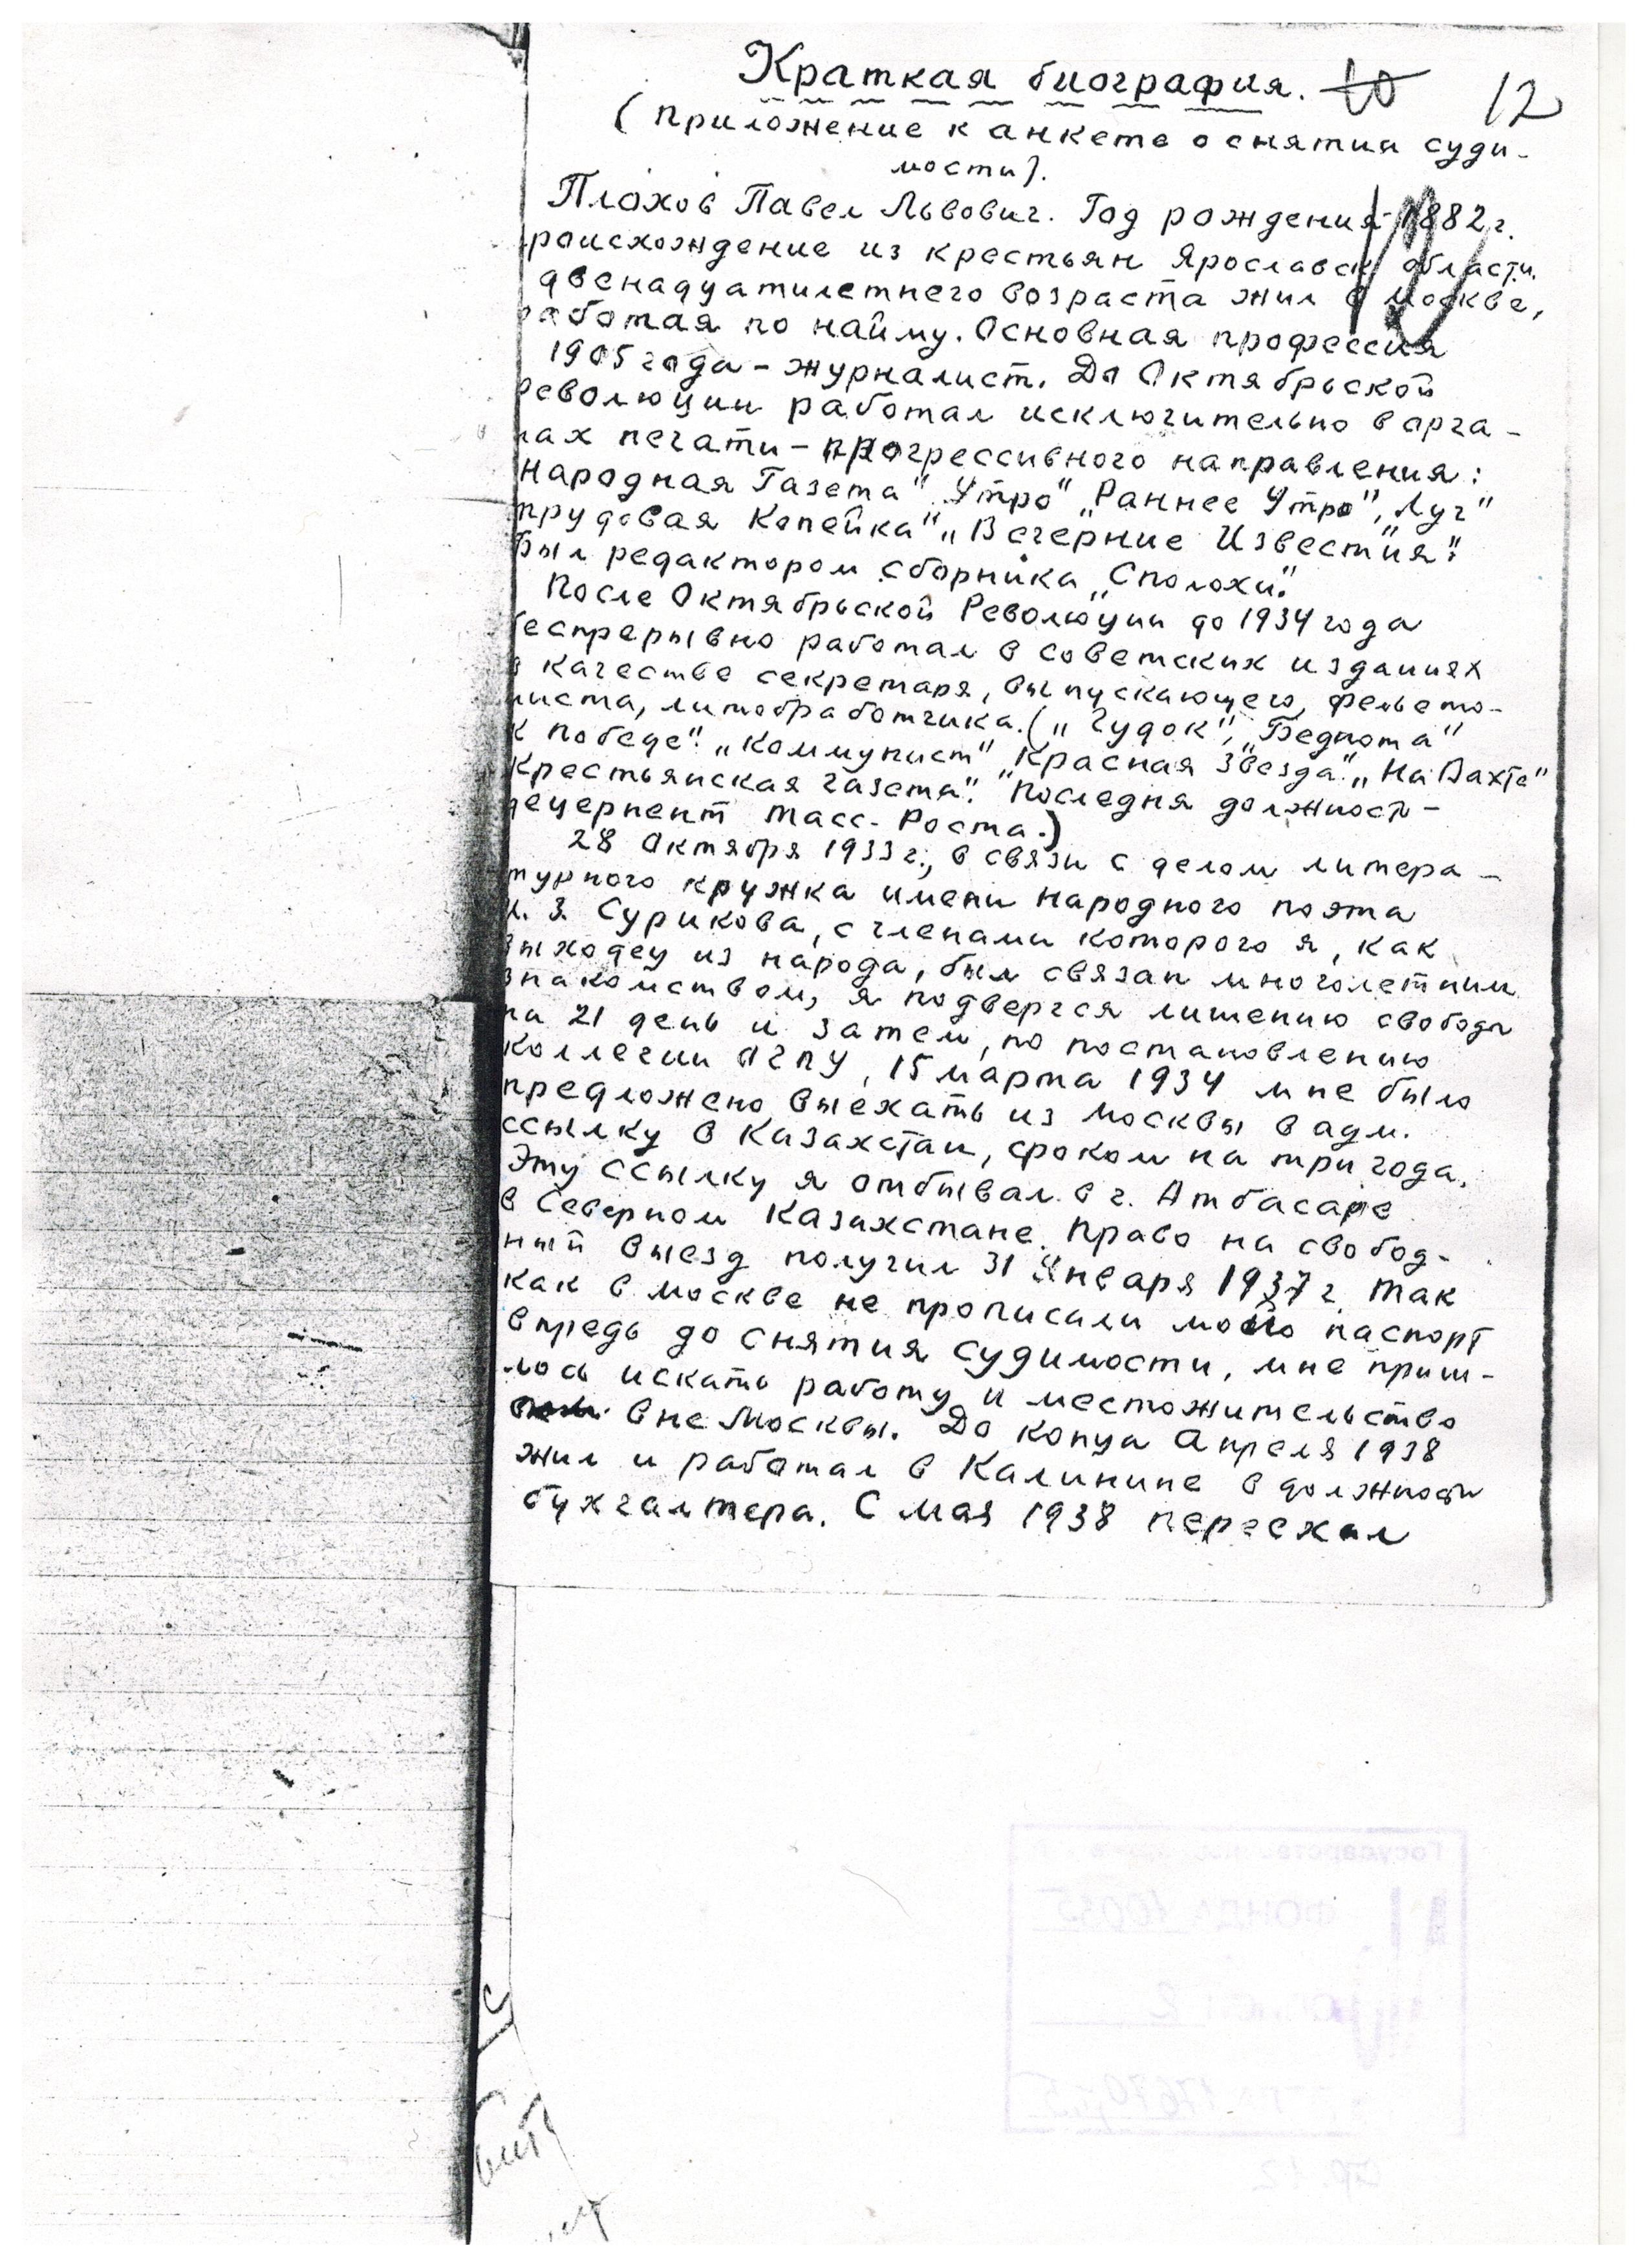 Краткая биография. 10 12
(приложение к анкете о снятии суди-
мости).
Плохов Павел Львович. Год рождения 1882 г.
роисхождение из крестьян Ярославск области.
двенадцатилетнего возраста жил в Москве,
работая по найму. Основная профессия
1905 года – журналист. До Октябрьской
революции работал исключительно в орга-
нах печати – прогрессивного направления:
Народная Газета" "Утро" "Раннее Утро", "Луч"
трудовая Копейка" "Вечерние Известия".
был редактором сборника "Сполохи".
После Октябрьской Революции до 1934 года
беспрерывно работал в советских изданиях
в качестве секретаря, выпускающего, фельето-
ниста, литобработчика. ("Гудок", "Беднота"
К победе". "Коммунист" "Красная Звезда". "На Вахте"
Крестьянская газета". Последня должност –
децернент Тасс-Роста.)
28 Октября 1933 г., в связи с делом литера-
турного кружка имени народного поэта
И. З. Сурикова, с членами которого я, как
выходец из народа, был связан многолетним
знакомством, я подвергся лишению свободы
на 21 день и затем, по постановлению
Коллегии ОГПУ, 15 марта 1934 мне было
предложено выехать из Москвы в адм.
ссылку в Казахстан, сроком на три года.
Эту ссылку я отбывал в г. Атбасаре
в Северном Казахстане. Право на свобод-
ный выезд получил 31 Января 1937 г. Так
как в Москве не прописали моего паспорт
впредь до снятия судимости, мне приш-
лось искать работу и местожительство
вне Москвы. До конца Апреля 1938
жил и работал в Калинине в должности
бухгалтера. С мая 1938 переехал
ФОНД 10035
2
стр. 12